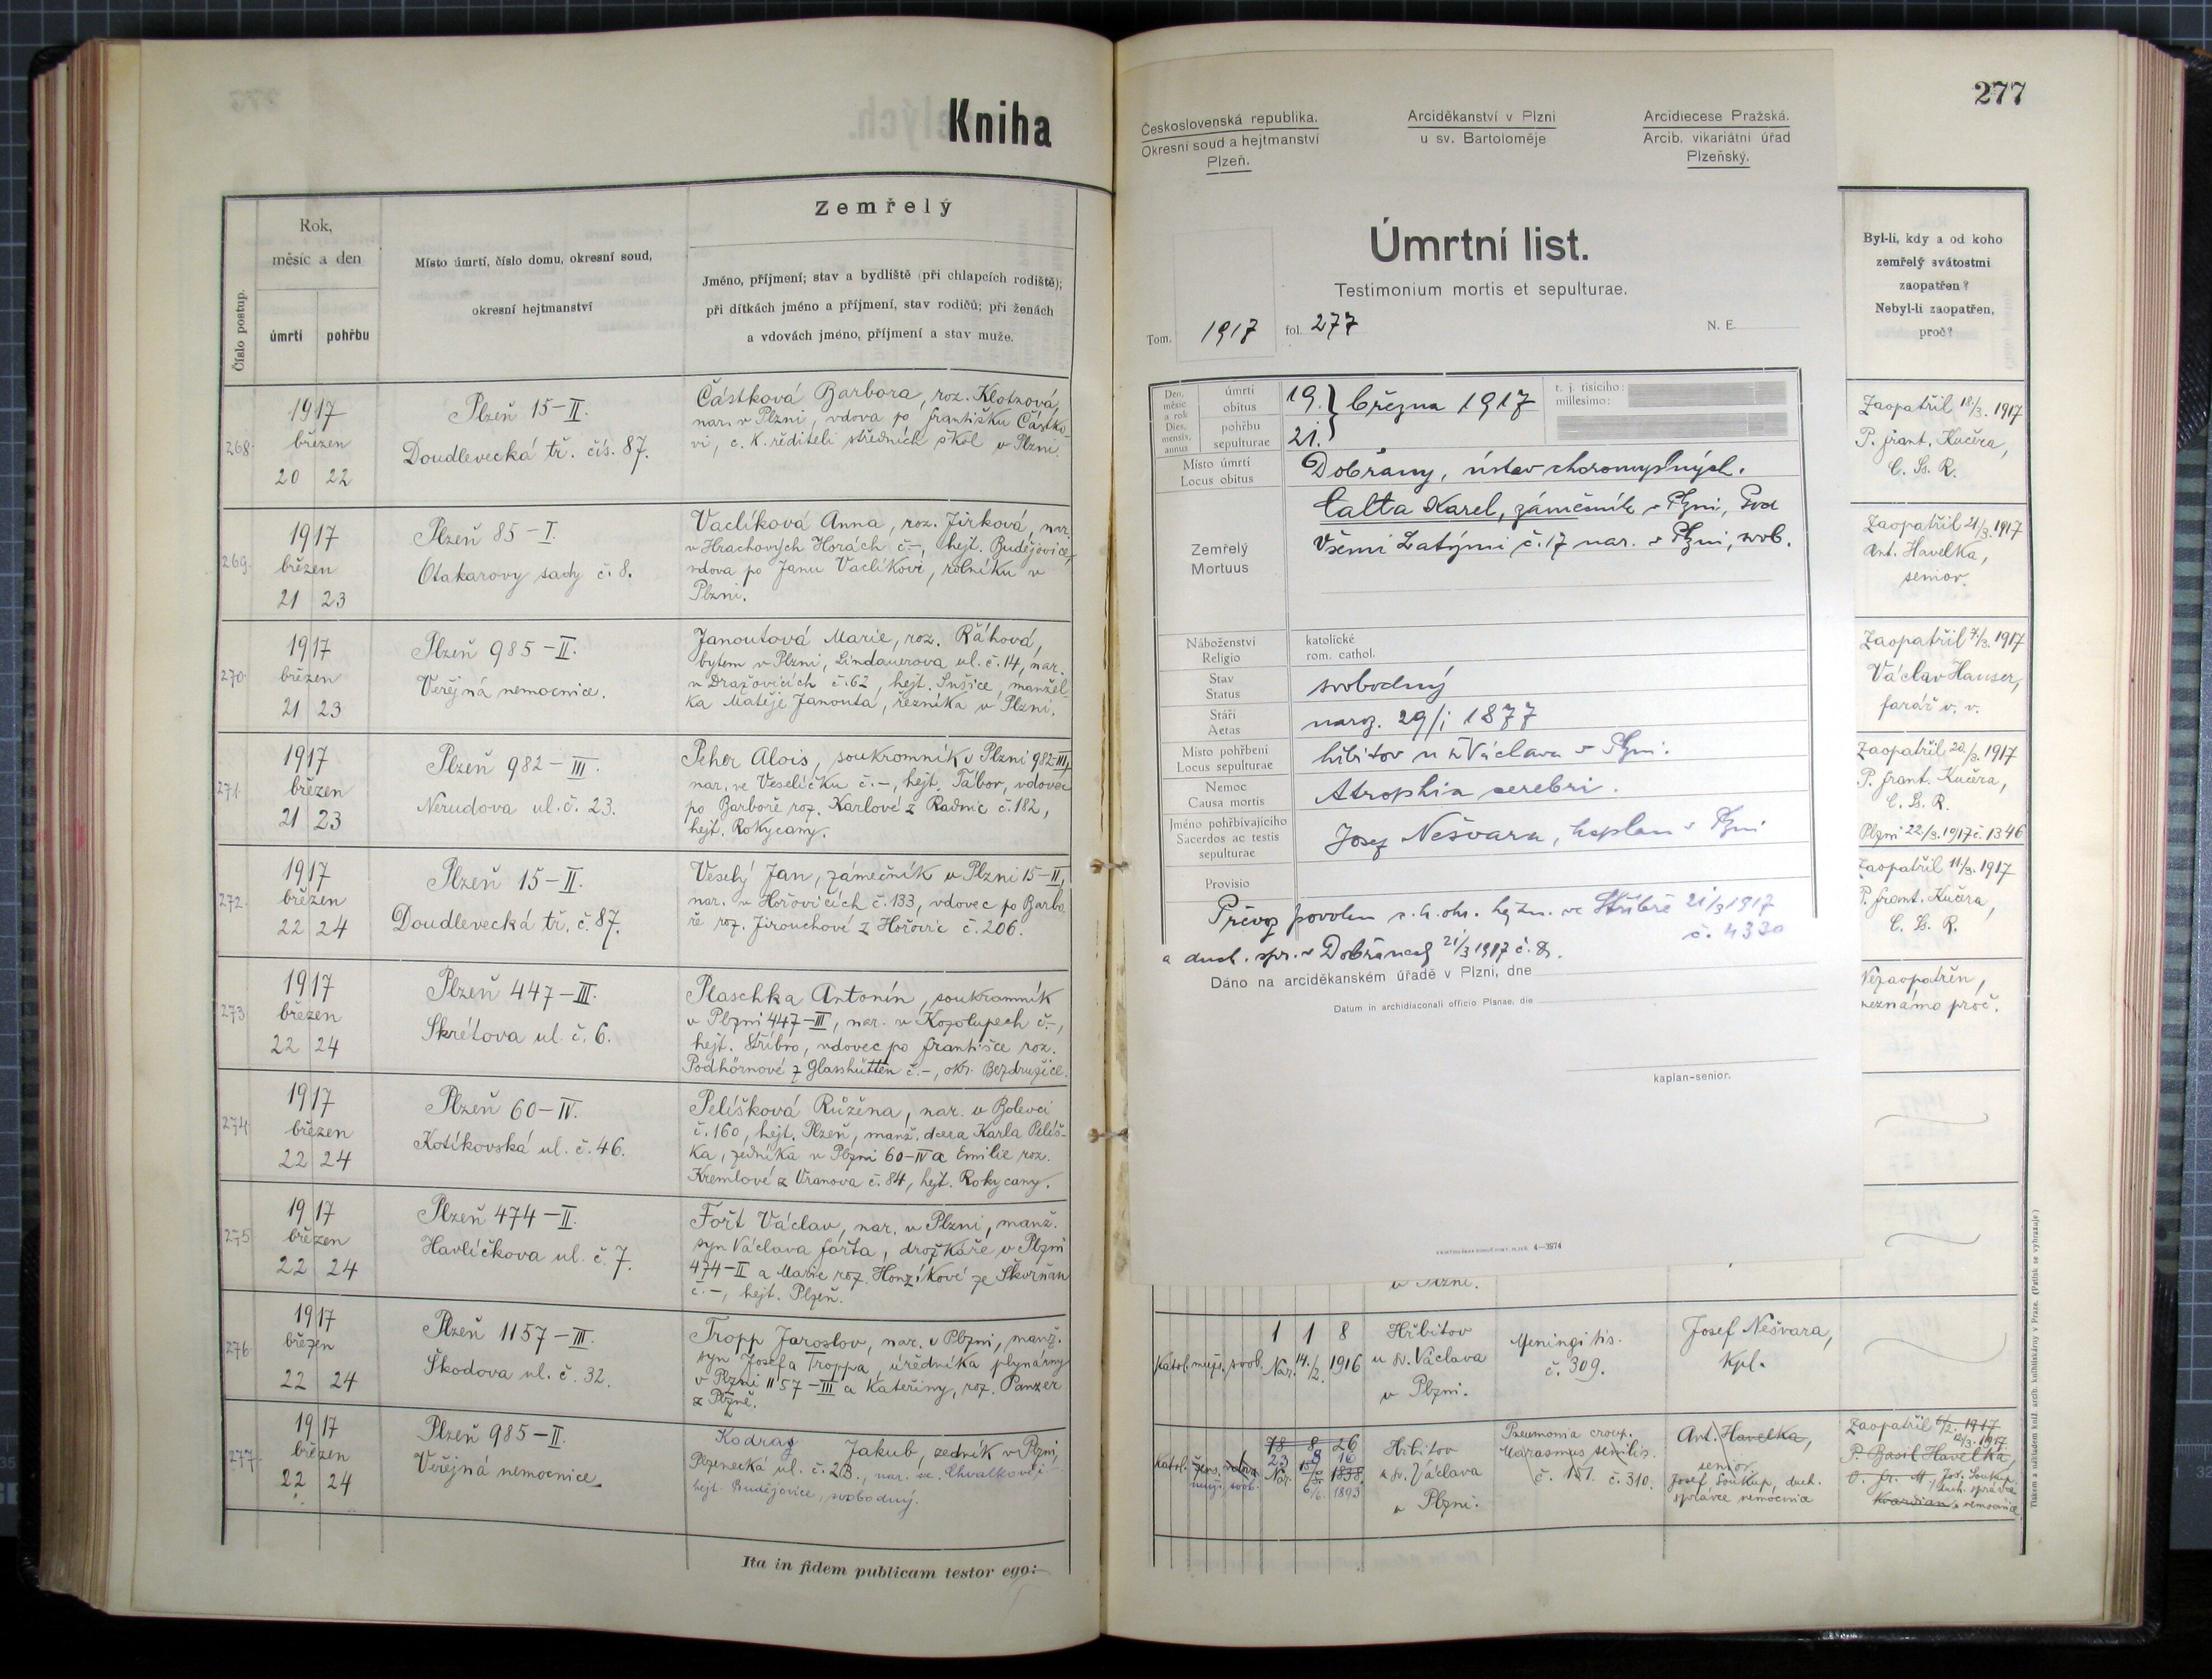 Kniha
Číslo postup.
Rok,
měsíc a den
úmrtí
pohřbu
Místo úmrtí, číslo domu, okresní soud,
okresní hejtmanství
Zemřelý
Jméno, příjmení; stav a bydliště (při chlapcích rodiště);
při dítkách jméno a příjmení, stav rodičů; při ženách
a vdovách jméno, příjmení a stav muže.
268.
1917
březen
20 22
Plzeň 15-II.
Doudlevecká tř. čís. 87.
Částková Barbora, roz. Klotzová,
nar. v Plzni, vdova po Františku Částko-
vi, c. k. řediteli středních škol v Plzni.
269.
1917
březen
21 23
Plzeň 85-I.
Otakarovy sady č. 8.
Vaclíková Anna, roz. Jirková, nar.
v Hrachových Horách č.-, hejt. Budějovice,
vdova po Janu Vaclíkovi, rolníku v
Plzni.
270.
1917
březen
21 23
Plzeň 985-II.
Veřejná nemocnice.
Janoutová Marie, roz. Řáhová,
bytem v Plzni, Lindauerova ul. č. 14, nar.
v Dražovicích č. 62, hejt. Sušice, manžel-
ka Matěje Janouta, řezníka v Plzni.
271.
1917
březen
21 23
Plzeň 982-III.
Nerudova ul. č. 23.
Peher Alois, soukromník v Plzni 982-III,
nar. ve Veselíčku č.-, hejt. Tábor, vdovec
po Barboře roz. Karlové z Radnic č. 182,
hejt. Rokycany.
272.
1917
březen
22 24
Plzeň 15-II.
Doudlevecká tř. č. 87.
Veselý Jan, zámečník v Plzni 15-II,
nar. v Hořovicích č. 133, vdovec po Barbo
ře roz. Jirouchové z Hořovic č. 206.
273.
1917
březen
22 24
Plzeň 447-III.
Skrétova ul. č. 6.
Plaschka Antonín, soukromník
v Plzni 447-III, nar. v Kozolupech č.-,
hejt. Stříbro, vdovec po Františce roz.
Podhörnové z Glasshütten č.-, okr. Bezdružice.
274.
1917
březen
22 24
Plzeň 60-IV.
Kotíkovská ul. č. 46.
Pelíšková Růžena, nar. v Bolevci
č. 160, hejt. Plzeň, manž. dcera Karla Pelíš-
ka, zedníka v Plzni 60-IV a Emilie roz.
Kremlové z Vranova č. 84, hejt. Rokycany.
275
1917
březen
22 24
Plzeň 474-II.
Havlíčkova ul. č. 7.
Fořt Václav, nar. v Plzni, manž.
syn Václava Fořta, drožkáře v Plzni
474-II a Marie roz. Honzíkové ze Skvrňan
č.-, hejt. Plzeň.
276.
1917
březen
22 24
Plzeň 1157-III.
Škodova ul. č. 32.
Tropp Jaroslov, nar. v Plzni, manž.
syn Josefa Troppa, úředníka plynárny
v Plzni 1157-III a Kateřiny, roz. Panzer
z Plzně.
277.
1917
březen
22 24
Plzeň 985-II.
Veřejná nemocnice
Kodraz Jakub, zedník v Plzni,
Plzenecká ul. č. 23., nar. ve Chvalkově č.-
hejt. Budějovice, svobodný.
Ita in fidem publicam testor ego:
277
Československá republika.
Okresní soud a hejtmanství
Plzeň.
Arciděkanství v Plzni
u sv. Bartoloměje
Arcidiecese Pražská.
Arcib. vikariátní úřad
Plzeňský.
Úmrtní list.
Testimonium mortis et sepulturae.
Tom. 1917 fol. 277 N. E.
Den, měsíc a rok
Dies, mensis, annus
úmrtí
obitus
pohřbu
sepulturae
19. } března 1917
21.
t. j. tisícího:
millesimo:
Místo úmrtí
Locus obitus
Dobřany, ústav choromyslných.
Zemřelý
Mortuus
Calta Karel, zámečník v Plzni, Pod
Všemi Svatými č. 17 nar. v Plzni, svob.
Náboženství
Religio
katolické
rom. cathol.
Stav
Status
svobodný
Stáří
Aetas
naroz. 29/i 1877
Místo pohřbení
Locus sepulturae
hřbitov u sv. Václava v Plzni.
Nemoc
Causa mortis
Atrophia cerebri.
Jméno pohřbívajícího
Sacerdos ac testis
sepulturae
Josef Nešvara, kaplan v Plzni
Provisio
Převoz povolen c. k. okr. hejtm. ve Stříbře 21/3 1917
č. 4330
a duch. spr. v Dobřanech 21/3 1917 č. 8.
Dáno na arciděkanském úřadě v Plzni, dne
Datum in archidiaconali officio Plsnae, die
kaplan-senior.
4-3974
Byl-li, kdy a od koho
zemřelý svátostmi
zaopatřen?
Nebyl-li zaopatřen,
proč?
Zaopatřil 18/3. 1917
P. Frant. Kučera,
C. Ss. R.
Zaopatřil 21/3. 1917
Ant. Havelka,
senior.
Zaopatřil 4/3. 1917
Václav Hauser,
farář v. v.
Zaopatřil 20/3. 1917
P. Frant. Kučera,
C. Ss. R.
Plzni 22/3. 1917 č. 1346
Zaopatřil 11/3. 1917
P. Frant. Kučera,
C. Ss. R.
Nezaopatřen,
neznámo proč.
v Plzni.
Katol. muž. svob.
1 1 8
Nar. 14./2. 1916
Hřbitov
u sv. Václava
v Plzni.
Meningitis.
č. 309.
Josef Nešvara,
kpl.
Katol. žens. vdova
muž. svob.
78 8 26
23 9 16
Nar. 1838.
6/6. 1893
Hřbitov
u sv. Václava
v Plzni.
Pneumonia croup.
Marasmus senilis.
č. 151. č. 310.
Ant. Havelka,
senior
Josef Soukup, duch.
správce nemocnice
Zaopatřil 6/2. 1917
12/3. 1917.
P. Basil Havelka,
O. Fr. M., Jos. Soukup
duch. správce
Kvardian. nemocnice
Tiskem a nákladem kníž. arcib. knihtiskárny v Praze. (Patisk se vyhrazuje.)